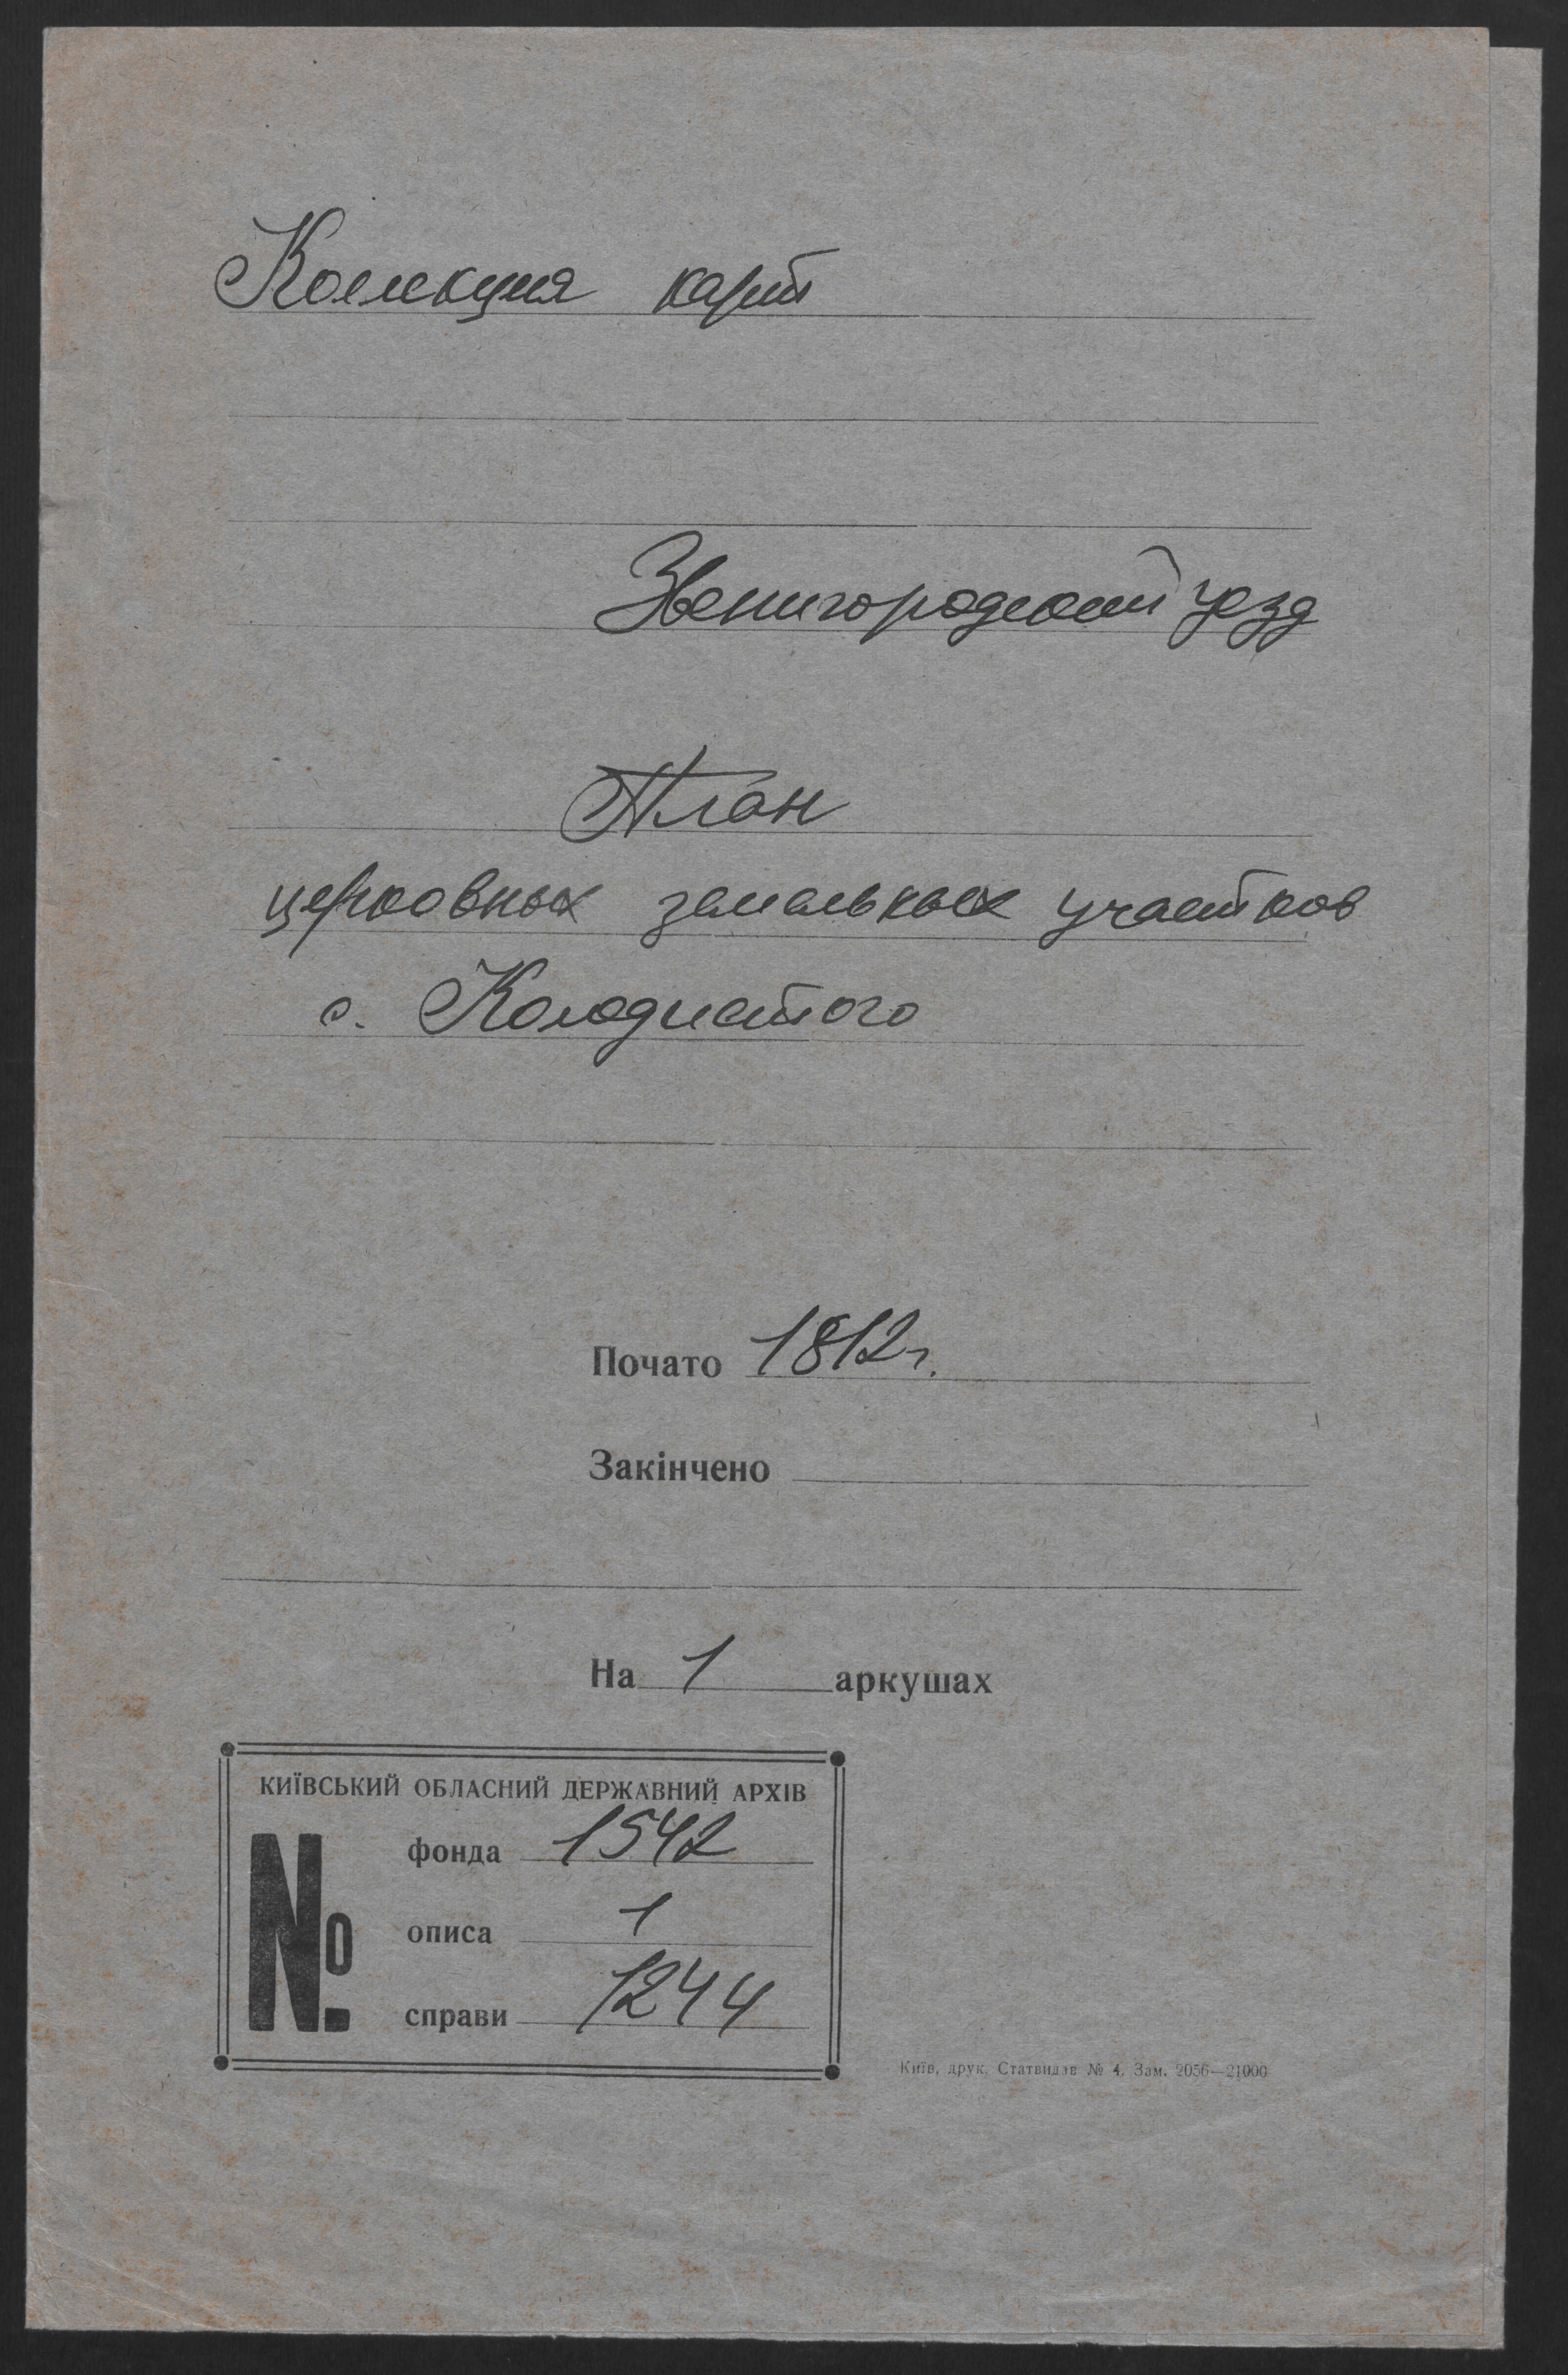 Коллекция карт
Звенигородский уезд
План
церковных земельных участков
с. Колодистого
Почато 1812 г.
Закінчено
На 1 аркушах
КИЇВСЬКИЙ ОБЛАСНИЙ ДЕРЖАВНИЙ АРХІВ
№
фонда 1542
описа 1
справи 1244
Київ, друк. Статвидав № 4. Зам. 2056—21000